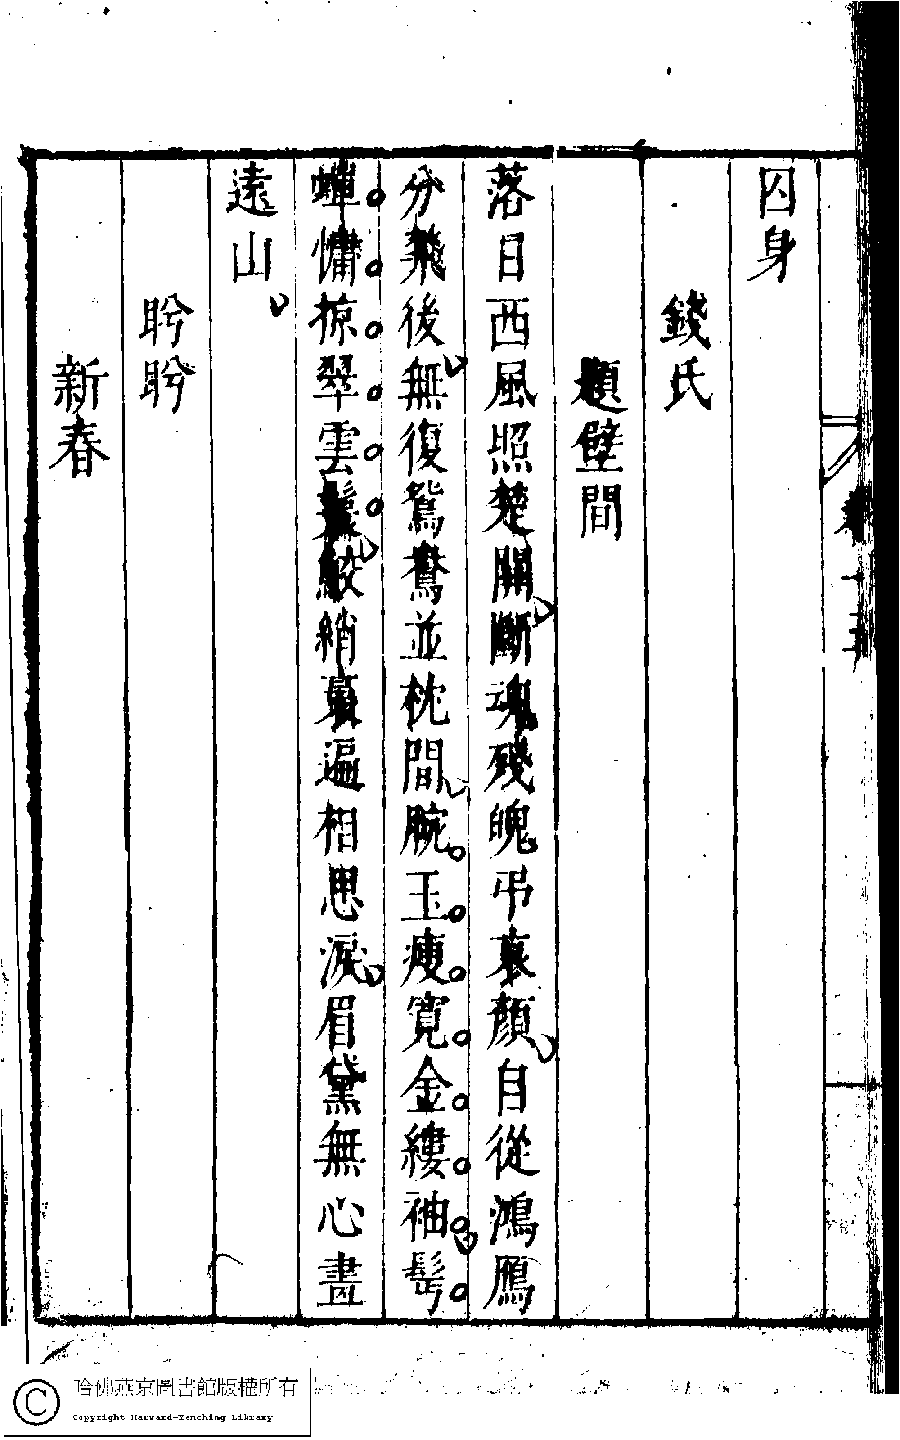 囚身
錢氏
題壁間
落日西風照楚關斷魂殘魄弔衰顏自從鴻鴈
分飛後無復鴛鴦並枕間腕玉瘦寬金縷袖髩
蟬慵掠翠雲鬟鮫綃裛遍相思淚眉黛無心畫
遠山
盻盻
新春
哈佛燕京圖書館版權所有
Copyright Harvard-Yenching Library